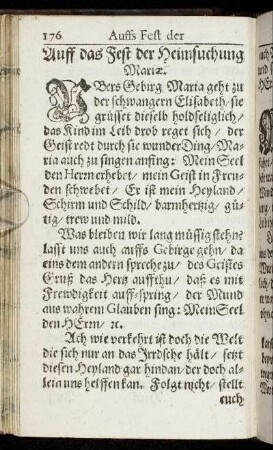 176 Auffs Fest der
Auff das Fest der Heimsuchung
Mariæ.
UBers Gebirg Maria geht zu
der schwangern Elisabeth/ sie
grüsset dieselb holdseliglich/
das Kind im Leib drob reget sich/ der
Geist redt durch sie wunder Ding/ Ma-
ria auch zu singen anfing: Mein Seel
den Herrn erhebet/ mein Geist in Freu-
den schwebet/ Er ist mein Heyland/
Schirm und Schild/ barmhertzig/ gü-
tig/ trew und mild.
Was bleiben wir lang müssig stehn?
lasst uns auch auffs Gebirge gehn/ da
eins dem andern spreche zu/ des Geistes
Gruß das Hertz auffthu/ daß es mit
Frewdigkeit auff-spring/ der Mund
aus wahrem Glauben sing: Mein Seel
den HErrn/ ꝛc.
Ach wie verkehrt ist doch die Welt
die sich nur an das Irrdsche hält/ setzt
diesen Heyland gar hindan/ der doch al-
lein uns helffen kan. Folgt nicht/ stellt
euch